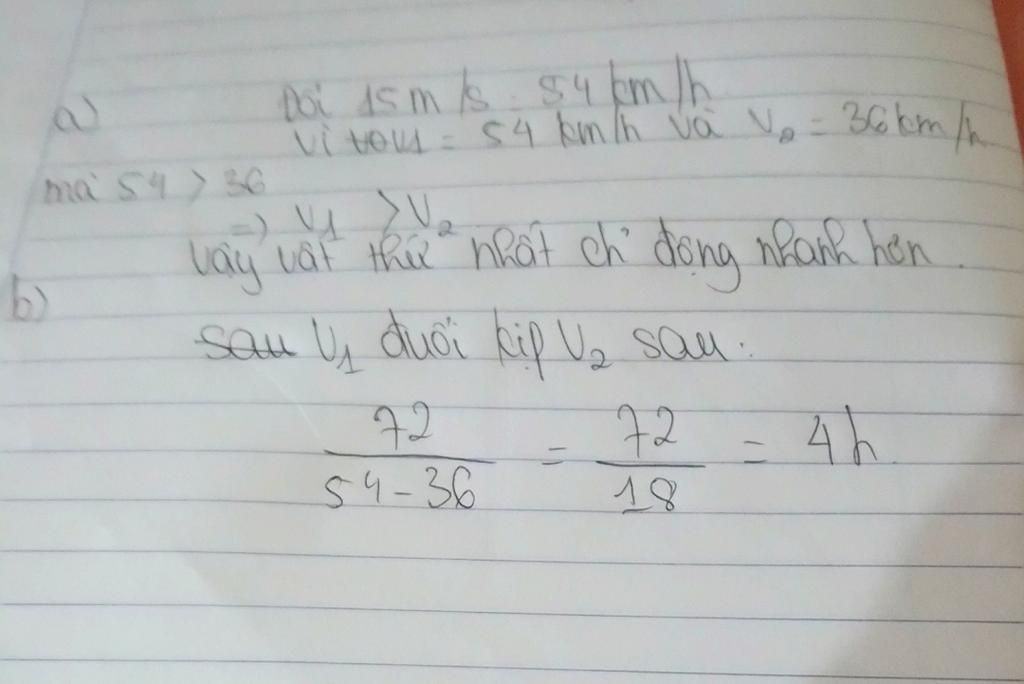 a) Đổi 15 m/s = 54 km/h
Vì v1 = 54 km/h và v2 = 36 km/h
mà 54 > 36
=> V1 > V2
Vậy vật thứ nhất ch' động nhanh hơn.
b)
sau V1 đuổi kịp V2 sau:
72 / 54-36 = 72 / 18 = 4h